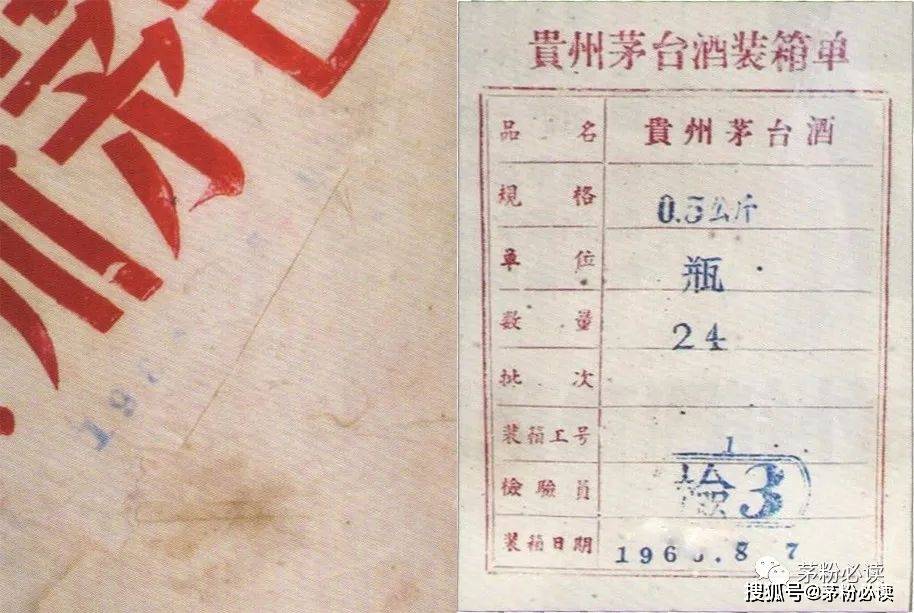 貴州茅台酒装箱单
品名 貴州茅台酒
規格 0.5公斤
單位 瓶
数量 24
批次
装箱工号 1
檢驗員 检3
装箱日期 8 7
茅粉必读
搜狐号@茅粉必读